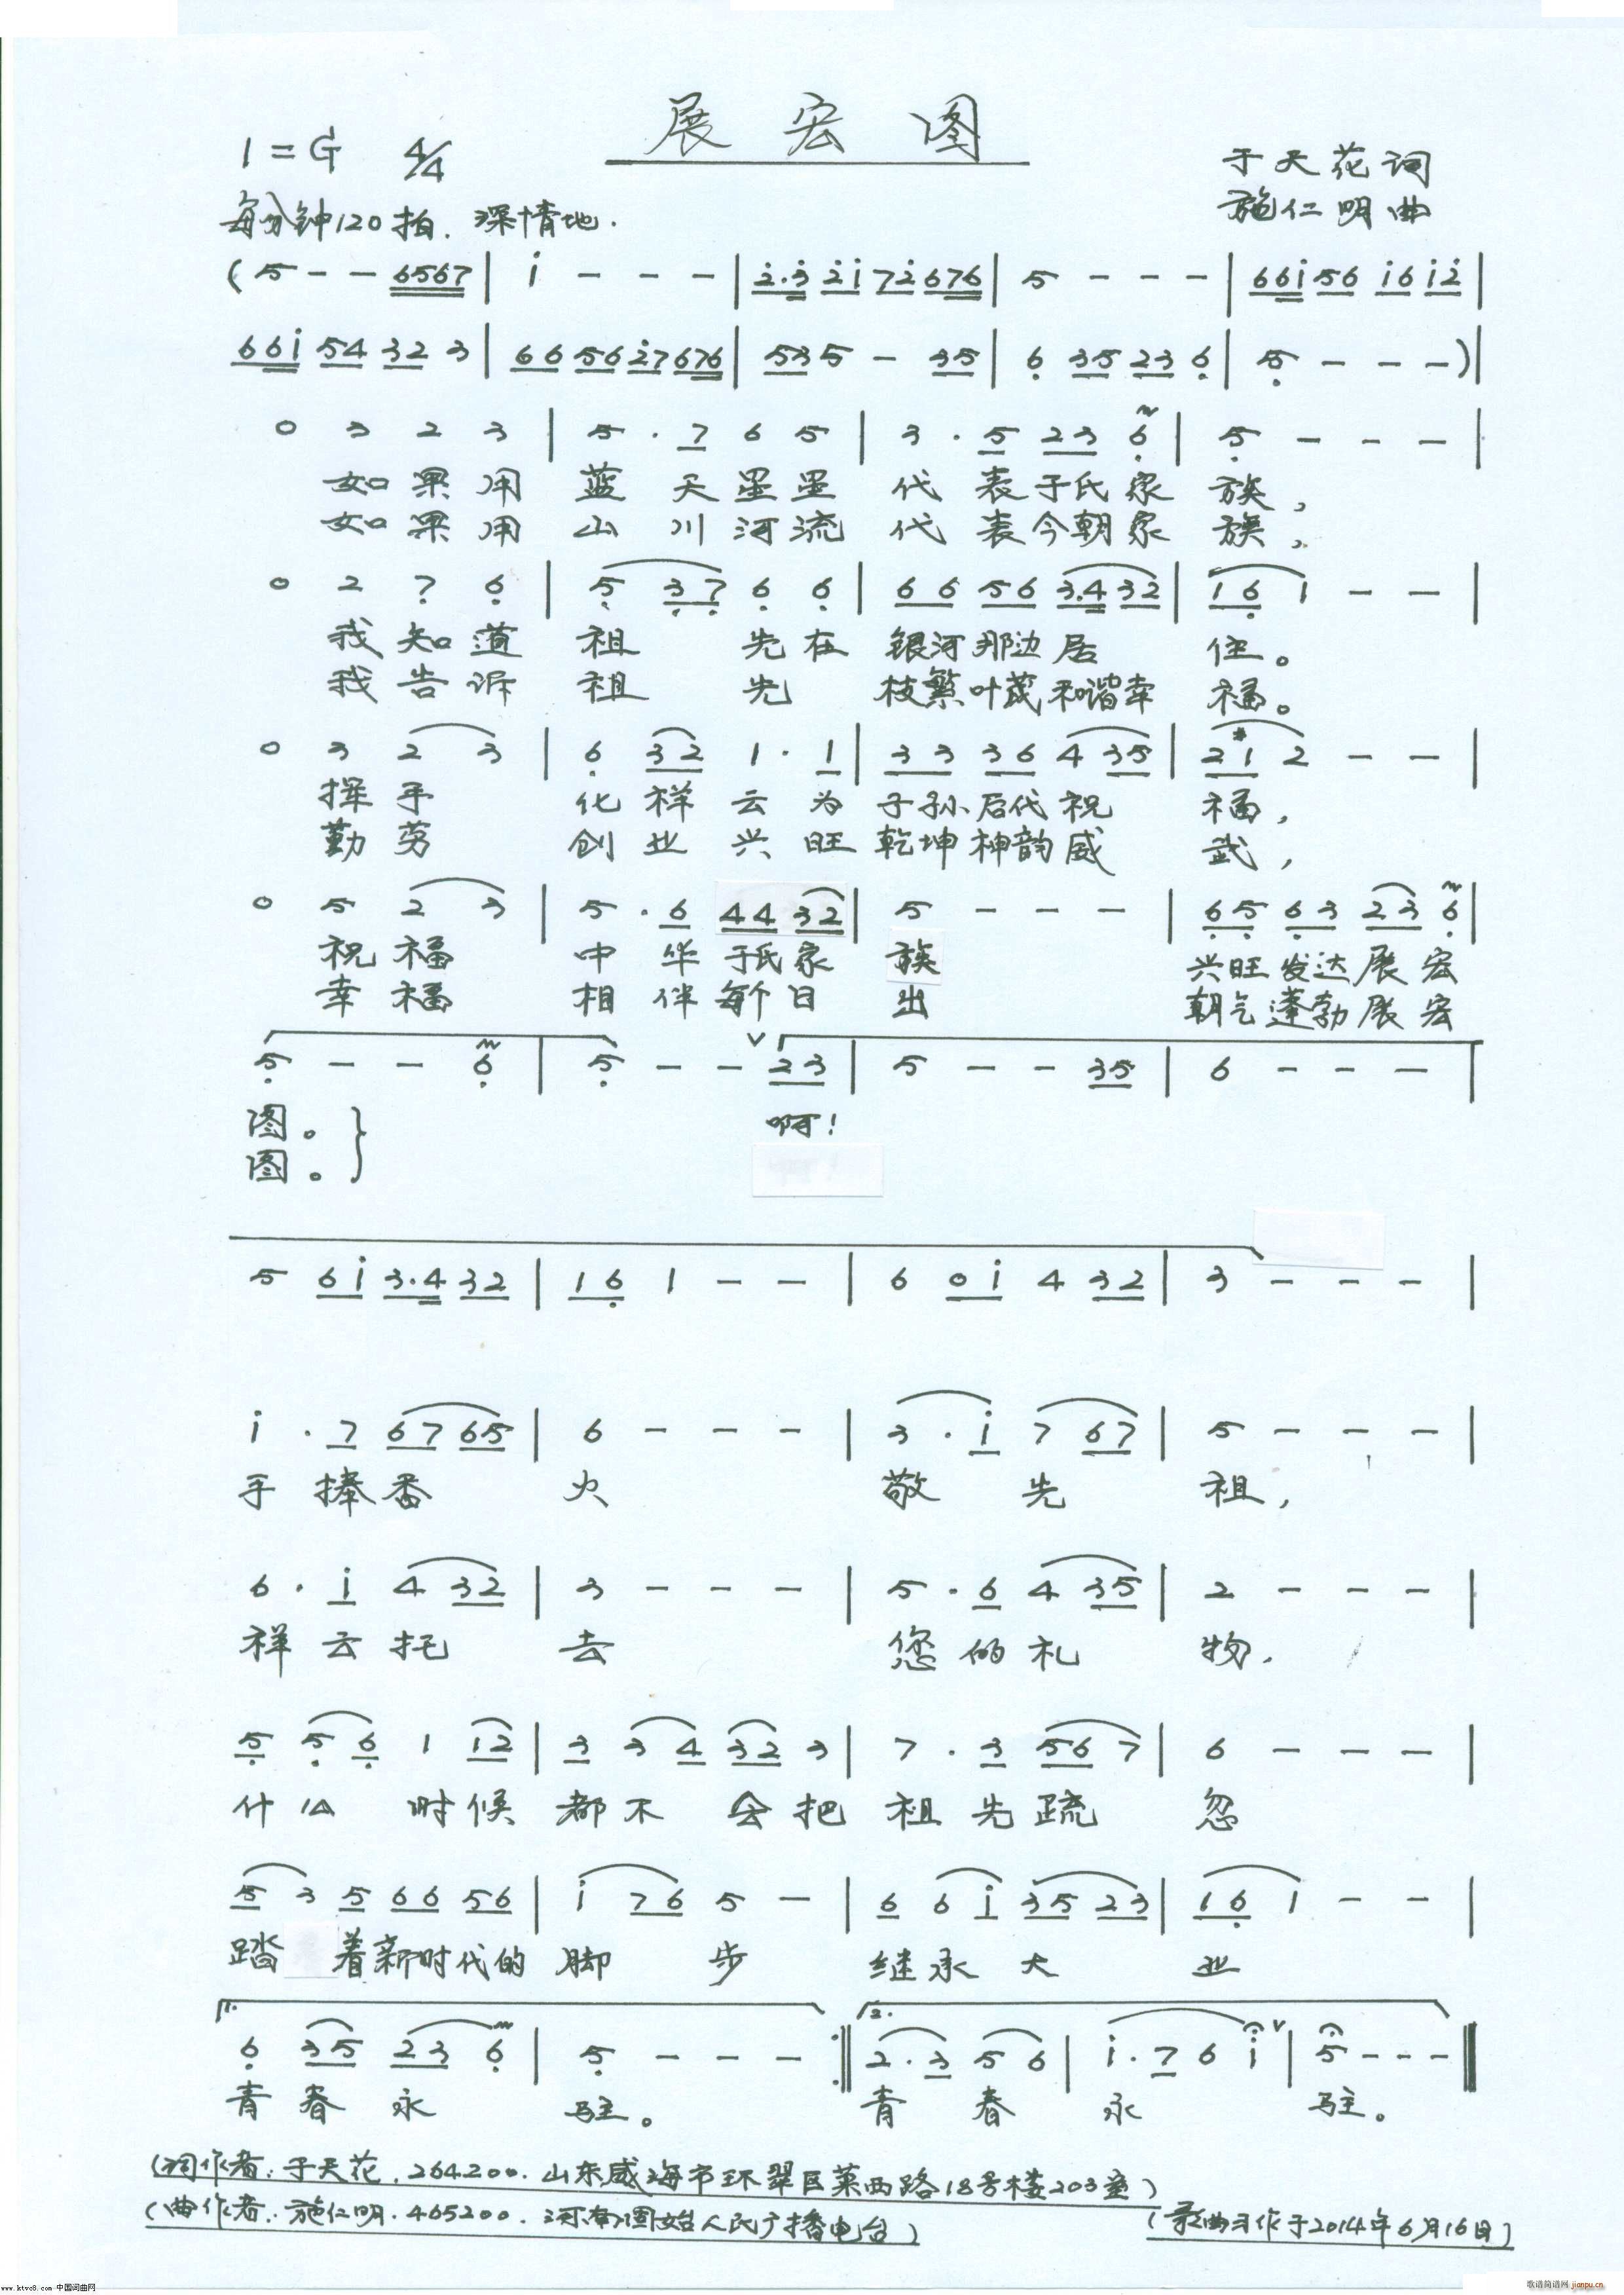 展宏图
1=G 4/4
于天花词
每分钟120拍.深情地.
施仁明曲
(5 - - 6567 | i - - - | 2.3 2i 72 676 | 5 - - - | 66i 56 i6 i2 |
66i 54 32 3 | 66 56 27 676 | 53 5 - 35 | 6 35 23 6 | 5 - - -)|
0 3 2 3 | 5 . 7 6 5 | 3 . 5 23 6 | 5 - - - |
如果用 蓝天星星 代表于氏家族，
如果用 山川河流 代表今朝家族，
0 2 7 6 | 5 37 6 6 | 66 56 3.4 32 | 16 1 - - |
我知道 祖先在 银河那边居住。
我告诉 祖先 枝繁叶茂和谐幸福。
0 3 2 3 | 6 32 1 . 1 | 33 36 4 35 | 2 #1 2 - - |
挥手 化祥云为 子孙后代祝福，
勤劳 创业兴旺 乾坤神韵威武，
0 5 2 3 | 5 . 6 44 32 | 5 - - - | 65 63 23 6 |
祝福 中华于氏家族 兴旺发达展宏
幸福 相伴每个日出 朝气蓬勃展宏
5 - - 6 | 5 - - 23 | 5 - - 35 | 6 - - - |
图。 啊！
图。
5 6i 3.4 32 | 16 1 - - | 6 0i 4 32 | 3 - - - |
i . 7 67 65 | 6 - - - | 3 . i 7 67 | 5 - - - |
手捧香火 敬先祖，
6 . i 4 32 | 3 - - - | 5 . 6 4 35 | 2 - - - |
祥云托去 您的礼物.
5 5 6 1 12 | 3 3 4 32 3 | 7 . 3 56 7 | 6 - - - |
什么时候 都不会把 祖先疏忽
5 3 5 66 56 | i 76 5 - | 6 6 i 35 23 | 16 1 - - |
踏着新时代的 脚步 继承大业
1. 2.
6 35 23 6 | 5 - - - :|| 2.3 5 6 | i.7 6 i | 5 - - - ||
青春永驻。 青春永驻。
(词作者:于天花.264200.山东威海市环翠区莱西路18号楼203室)
(曲作者:施仁明.465200.河南固始人民广播电台)
(歌曲习作于2014年6月16日)
www.ktvc8.com-中国词曲网
歌谱简谱网 jianpu.cn